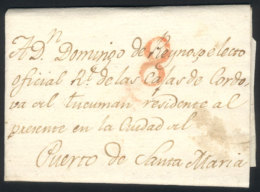 A Dn Domingo de Reynoso electo
oficial Rl de las Cajas de Cordo
va del Tucuman residente al
presente en la Ciudad del
Puerto de Santa Maria
8